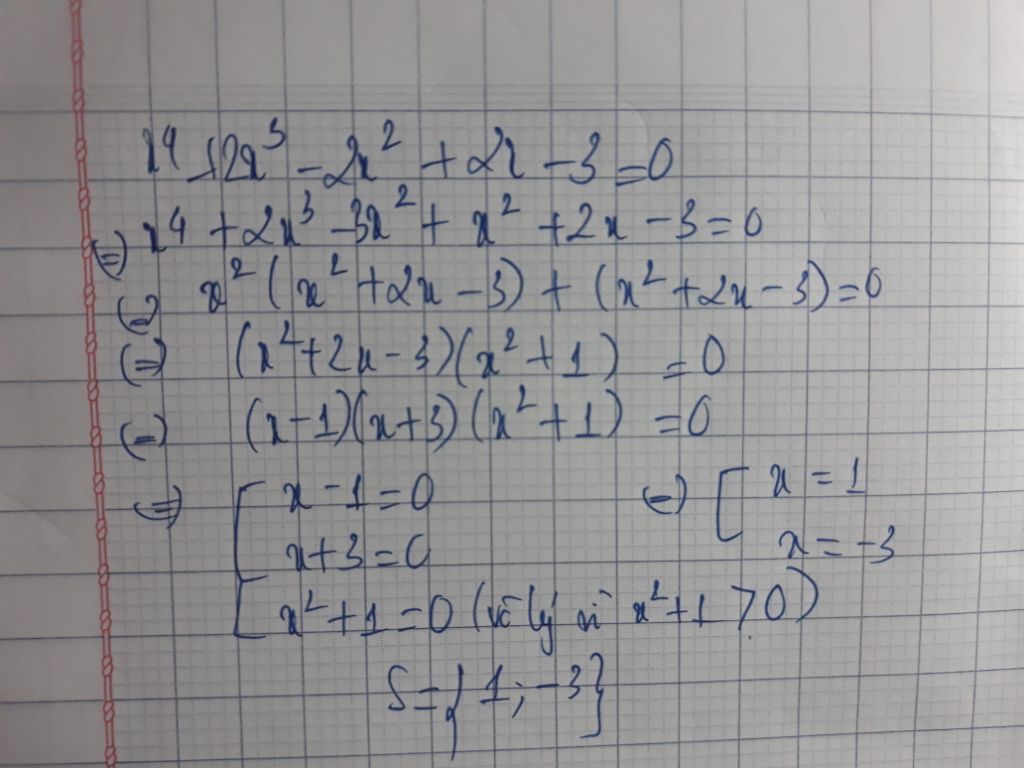 x⁴ + 2x³ - 2x² + 2x - 3 = 0
(=) x⁴ + 2x³ - 3x² + x² + 2x - 3 = 0
(=) x² (x² + 2x - 3) + (x² + 2x - 3) = 0
(=) (x² + 2x - 3)(x² + 1) = 0
(=) (x - 1)(x + 3)(x² + 1) = 0
(=) [ x - 1 = 0 (=) [ x = 1
x + 3 = 0 x = -3
x² + 1 = 0 (vô lý vì x² + 1 > 0)
S = { 1; -3 }